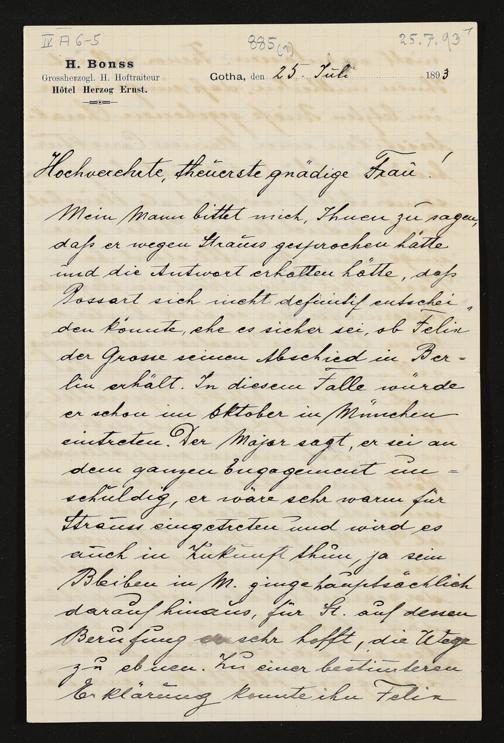 IV A 6-5
885(1)
25.7.93
H. Bonss
Grossherzogl. H. Hoftraiteur
Hôtel Herzog Ernst.
Gotha, den 25. Juli 1893
Hochverehrte, theuerste gnädige Frau!
Mein Mann bittet mich, Ihnen zu sagen,
daß er wegen Strauss gesprochen hätte
und die Antwort erhalten hätte, daß
Possart sich nicht definitif entschei
den könnte, ehe es sicher sei, ob "Felix
der Grosse seinen Abschied in Ber=
lin erhält. In diesem Falle würde
er schon im Oktober in München
eintreten. Der Major sagt, er sei an
dem ganzen Engagement un=
schuldig, er wäre sehr warm für
Strauss eingetreten und wird es
auch in Zukunft thun, ja sein
Bleiben in M. ginge hauptsächlich
darauf hinaus, für St. auf dessen
Berufung er sehr hofft, die Wege
zu ebnen. Zu einer bestimteren
Erklärung konnte ihn Felix